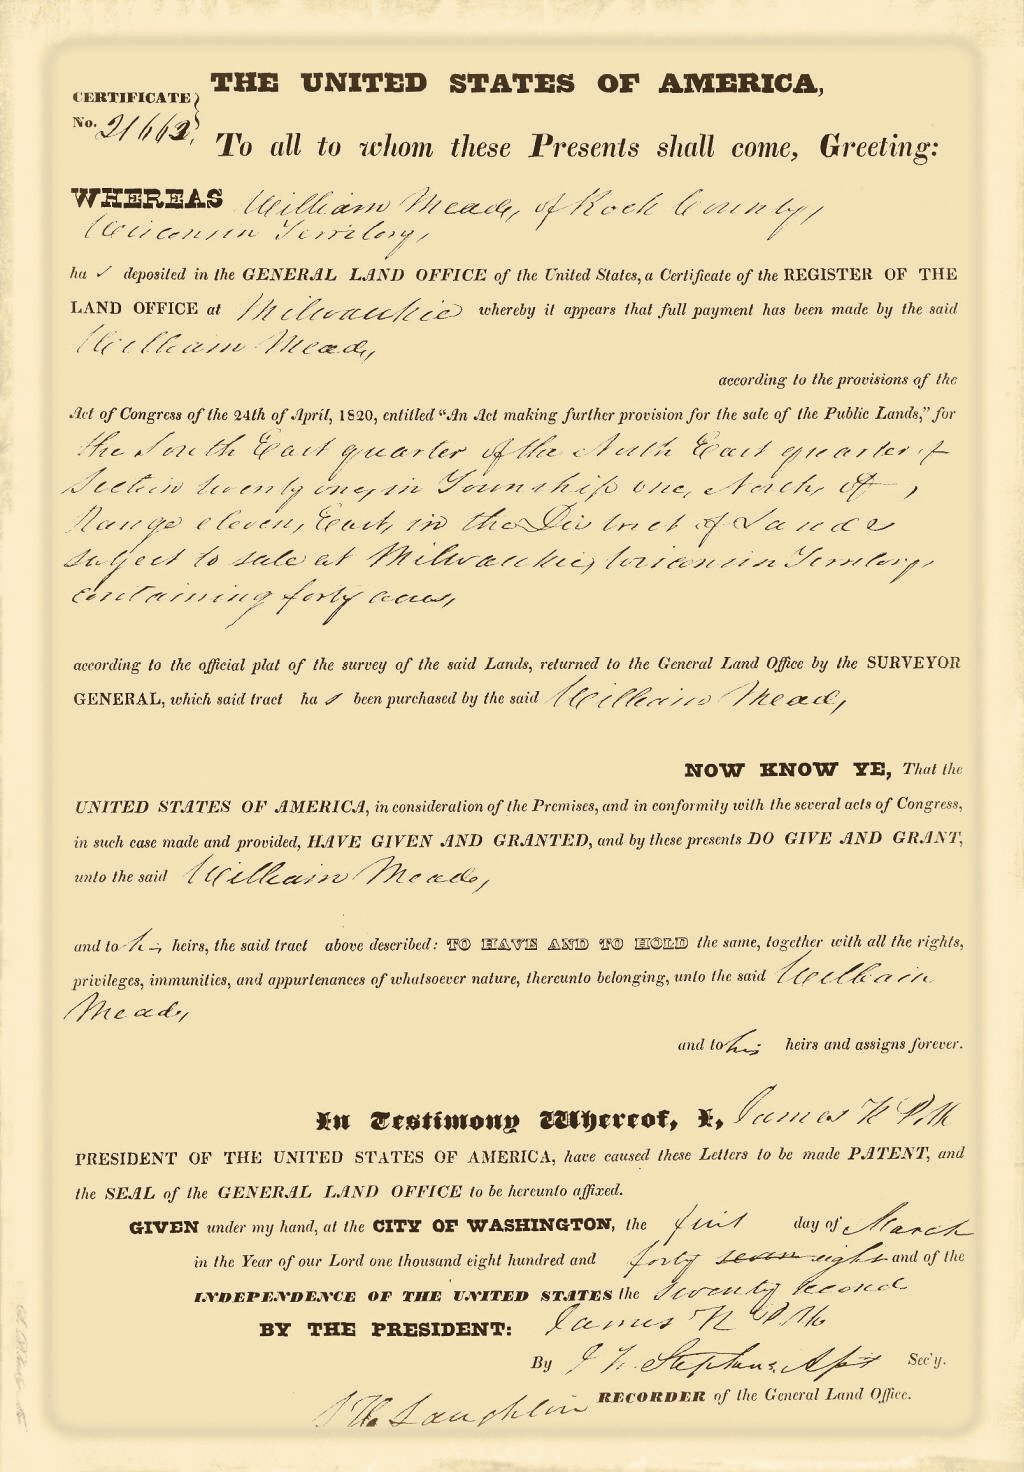 THE UNITED STATES OF AMERICA,
CERTIFICATE
No. 21662
To all to whom these Presents shall come, Greeting:
WHEREAS William Meade, of Rock County,
Wisconsin Territory,
ha s deposited in the GENERAL LAND OFFICE of the United States, a Certificate of the REGISTER OF THE
LAND OFFICE at Milwaukie whereby it appears that full payment has been made by the said
William Meade,
according to the provisions of the
Act of Congress of the 24th of April, 1820, entitled “An Act making further provision for the sale of the Public Lands,” for
the South East quarter of the North East quarter of
Section twenty one, in Township one, North, of
Range eleven, East, in the District of Lands
subject to sale at Milwaukie, Wisconsin Territory,
containing forty acres,
according to the official plat of the survey of the said Lands, returned to the General Land Office by the SURVEYOR
GENERAL, which said tract ha s been purchased by the said William Meade,
NOW KNOW YE, That the
UNITED STATES OF AMERICA, in consideration of the Premises, and in conformity with the several acts of Congress,
in such case made and provided, HAVE GIVEN AND GRANTED, and by these presents DO GIVE AND GRANT,
unto the said William Meade,
and to his heirs, the said tract above described: TO HAVE AND TO HOLD the same, together with all the rights,
privileges, immunities, and appurtenances of whatsoever nature, thereunto belonging, unto the said William
Meade,
and to his heirs and assigns forever.
In Testimony Whereof, I, James K Polk
PRESIDENT OF THE UNITED STATES OF AMERICA, have caused these Letters to be made PATENT, and
the SEAL of the GENERAL LAND OFFICE to be hereunto affixed.
GIVEN under my hand, at the CITY OF WASHINGTON, the first day of March
in the Year of our Lord one thousand eight hundred and forty seven eight and of the
INDEPENDENCE OF THE UNITED STATES the Seventy second
BY THE PRESIDENT: James K Polk
By J K Stephens, Asst Sec'y.
S H Laughlin RECORDER of the General Land Office.